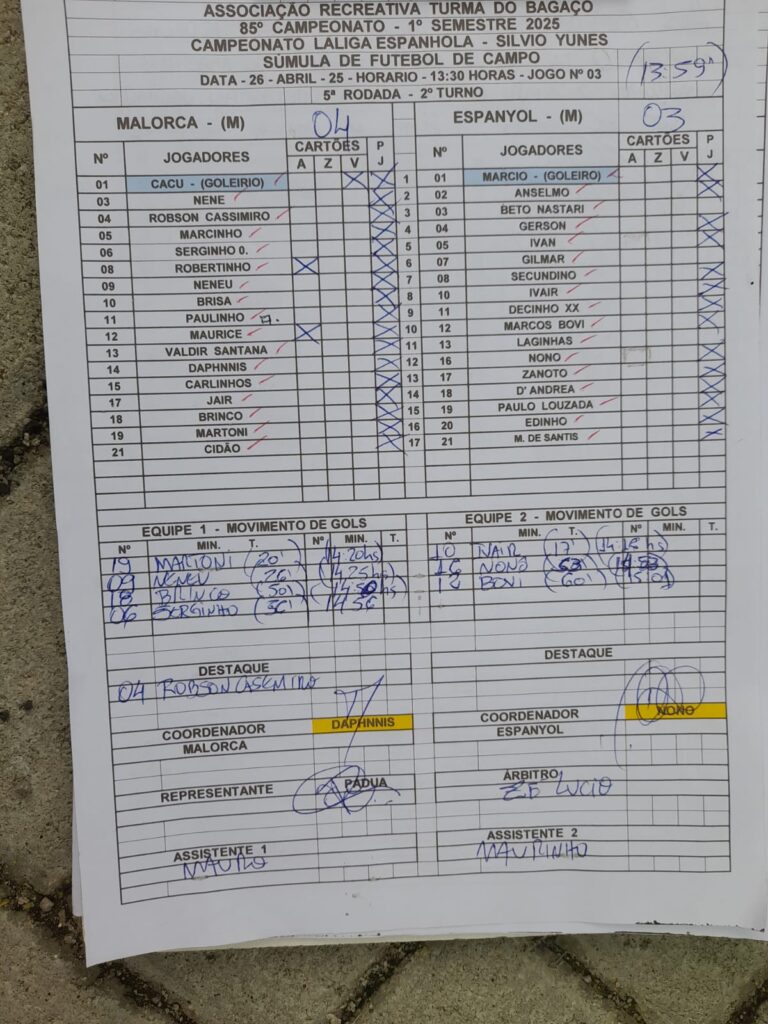 ASSOCIAÇÃO RECREATIVA TURMA DO BAGAÇO
85º CAMPEONATO - 1º SEMESTRE 2025
CAMPEONATO LALIGA ESPANHOLA - SILVIO YUNES
SÚMULA DE FUTEBOL DE CAMPO
DATA - 26 - ABRIL - 25 - HORARIO - 13:30 HORAS - JOGO Nº 03 (13:59')
5ª RODADA - 2º TURNO
MALORCA - (M) 04 ESPANYOL - (M) 03
Nº JOGADORES CARTÕES A Z V P J Nº JOGADORES CARTÕES A Z V P J
01 CACU - (GOLEIRIO) X X 1 01 MARCIO - (GOLEIRO) X
03 NENE X 2 02 ANSELMO X
04 ROBSON CASSIMIRO X 3 03 BETO NASTARI
05 MARCINHO X 4 04 GERSON X
06 SERGINHO 0. X 5 05 IVAN X
08 ROBERTINHO X X 6 07 GILMAR
09 NENEU X 7 08 SECUNDINO X
10 BRISA X 8 10 IVAIR X
11 PAULINHO X 9 11 DECINHO XX X
12 MAURICE X X 10 12 MARCOS BOVI X
13 VALDIR SANTANA X 11 13 LAGINHAS
14 DAPHNNIS X 12 16 NONO X
15 CARLINHOS X 13 17 ZANOTO X
17 JAIR X 14 18 D' ANDREA X
18 BRINCO X 15 19 PAULO LOUZADA X
19 MARTONI X 16 20 EDINHO X
21 CIDÃO X 17 21 M. DE SANTIS X
EQUIPE 1 - MOVIMENTO DE GOLS EQUIPE 2 - MOVIMENTO DE GOLS
Nº MIN. T. Nº MIN. T. Nº MIN. T. Nº MIN. T.
19 MARTONI (20') (14:20hs) 10 (17') (14:16 hs)
09 NENEU (26') (14:25hs) 16 NONO
18 BRINCO (50') BOVI (60') (15:01)
06 SERGINHO (56') 14:56
DESTAQUE DESTAQUE
04 ROBSON CASEMIRO
COORDENADOR DAPHNNIS COORDENADOR NONO
MALORCA ESPANYOL
REPRESENTANTE PÁDUA ÁRBITRO
ZÉ LUCIO
ASSISTENTE 1 ASSISTENTE 2
MAURO MAURINHO